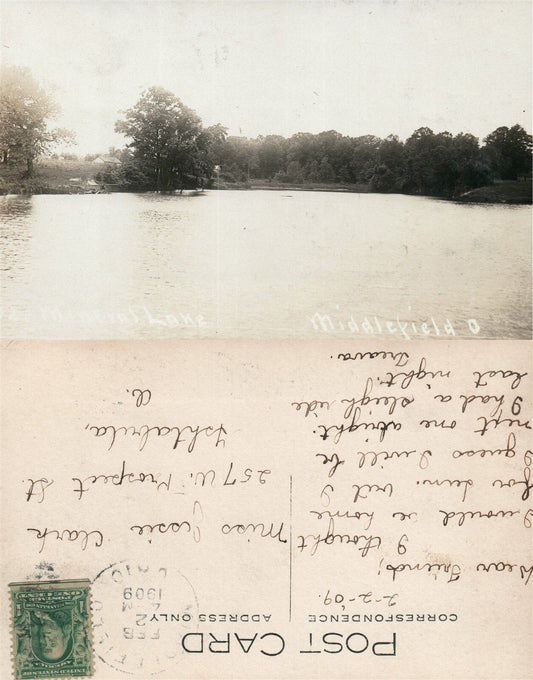 Mineral Lake
Middlefield O
POST CARD
CORRESPONDENCE
ADDRESS ONLY
2-2-09.
Dear Friend;
I thought
I would be home
for Sun. but I
guess I will be
next one alright.
I had a sleigh ride
last night.
Treava.
Miss Jessie Clark
257 W. Prospect St.
Ashtabula,
O.
FEB
2
1909
1
ONE CENT